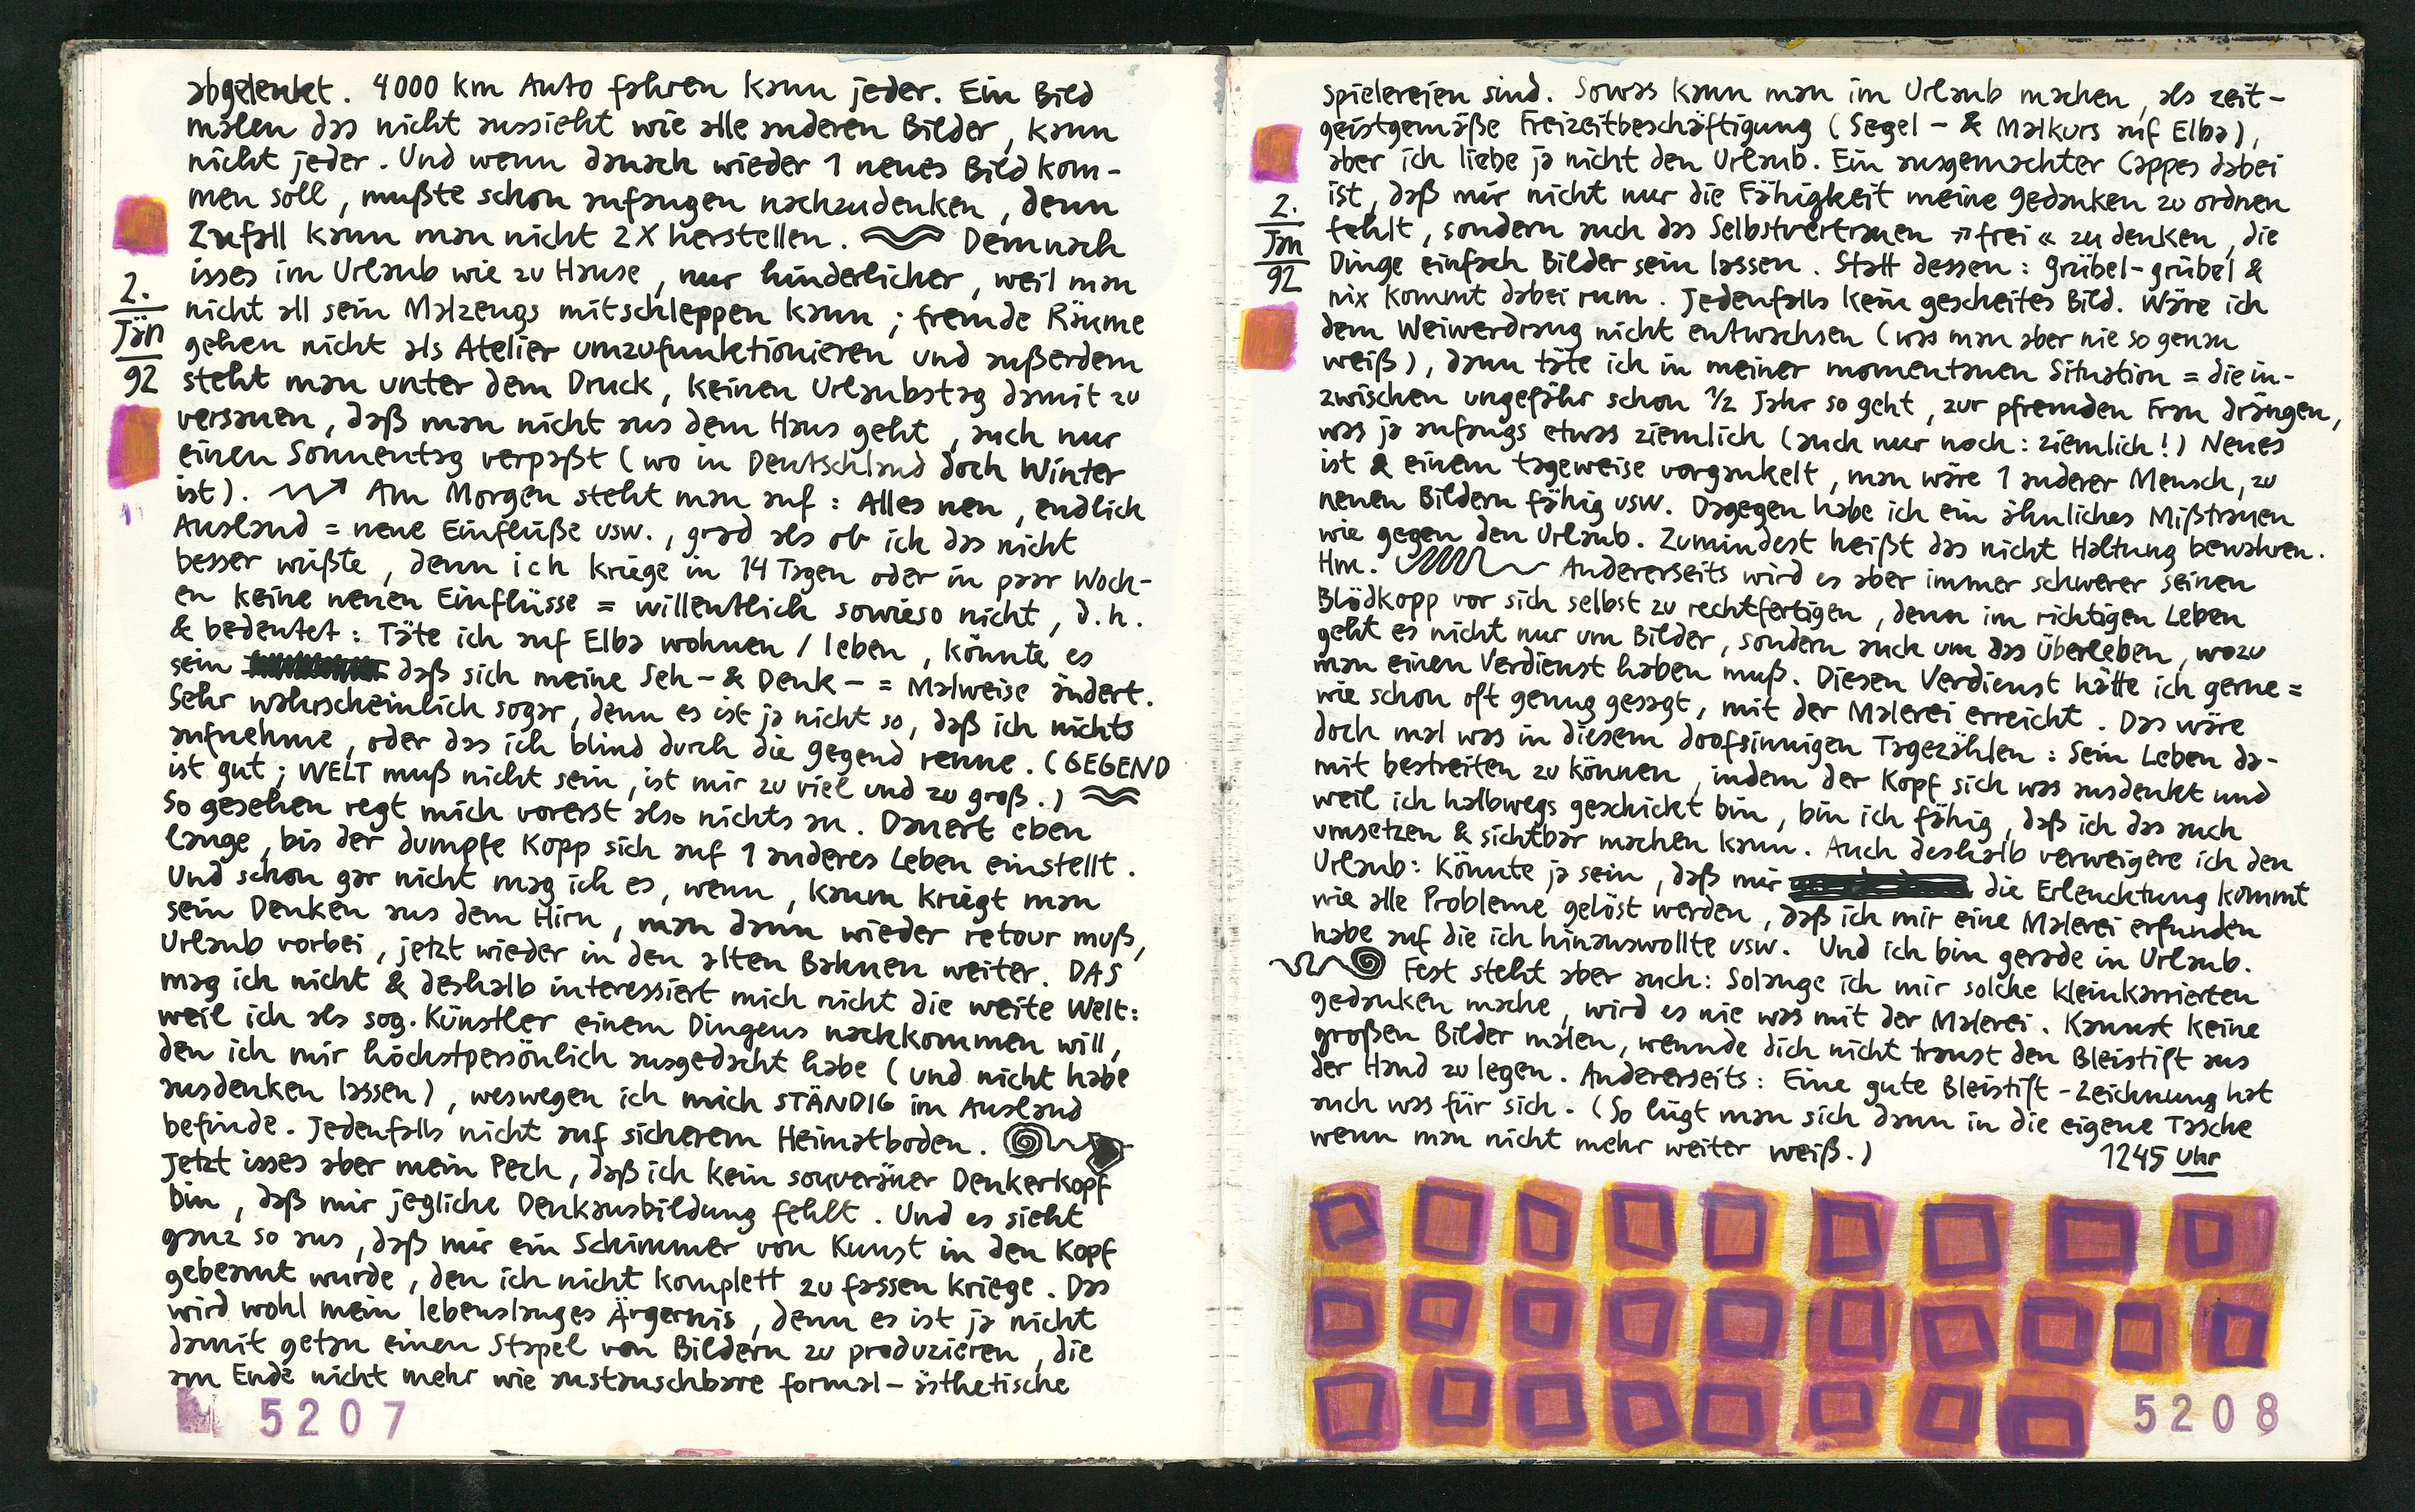 abgelenkt. 4000 km Auto fahren kann jeder. Ein Bild
malen das nicht aussieht wie alle anderen Bilder, kann
nicht jeder. Und wenn danach wieder 1 neues Bild kom-
men soll, mußte schon anfangen nachzudenken, denn
Zufall kann man nicht 2X herstellen. Demnach
isses im Urlaub wie zu Hause, nur hinderlicher, weil man
nicht all sein Malzeugs mitschleppen kann; fremde Räume
gehen nicht als Atelier umzufunktionieren und außerdem
steht man unter dem Druck, keinen Urlaubstag damit zu
versauen, daß man nicht aus dem Haus geht, auch nur
einen Sonnentag verpaßt (wo in Deutschland doch Winter
ist). Am Morgen steht man auf: Alles neu, endlich
Ausland = neue Einflüße usw., grad als ob ich das nicht
besser wüßte, denn ich kriege in 14 Tagen oder in paar Woch-
en keine neuen Einflüsse = willentlich sowieso nicht, d.h.
& bedeutet: Täte ich auf Elba wohnen / leben, könnte es
sein daß sich meine Seh- & Denk- = Malweise ändert.
Sehr wahrscheinlich sogar, denn es ist ja nicht so, daß ich nichts
aufnehme, oder das ich blind durch die Gegend renne. (GEGEND
ist gut; WELT muß nicht sein, ist mir zu viel und zu groß.)
So gesehen regt mich vorerst also nichts an. Dauert eben
lange, bis der dumpfe Kopp sich auf 1 anderes Leben einstellt.
Und schon gar nicht mag ich es, wenn, kaum kriegt man
sein Denken aus dem Hirn, man dann wieder retour muß,
Urlaub vorbei, jetzt wieder in den alten Bahnen weiter. DAS
mag ich nicht & deshalb interessiert mich nicht die weite Welt:
weil ich als sog. Künstler einem Dingens nachkommen will,
den ich mir höchstpersönlich ausgedacht habe (und nicht habe
ausdenken lassen), weswegen ich mich STÄNDIG im Ausland
befinde. Jedenfalls nicht auf sicherem Heimatboden.
Jetzt isses aber mein Pech, daß ich kein souveräner Denkerkopf
bin, daß mir jegliche Denkausbildung fehlt. Und es sieht
ganz so aus, daß mir ein Schimmer von Kunst in den Kopf
gebeamt wurde, den ich nicht komplett zu fassen kriege. Das
wird wohl mein lebenslanges Ärgernis, denn es ist ja nicht
damit getan einen Stapel von Bildern zu produzieren, die
am Ende nicht mehr wie austauschbare formal-ästhetische
2.
Jän
92
5207
spielereien sind. Sowas kann man im Urlaub machen, als zeit-
geistgemäße Freizeitbeschäftigung (Segel- & Malkurs auf Elba),
aber ich liebe ja nicht den Urlaub. Ein ausgemachter Cappes dabei
ist, daß mir nicht nur die Fähigkeit meine Gedanken zu ordnen
fehlt, sondern auch das Selbstvertrauen »frei« zu denken, die
Dinge einfach Bilder sein lassen. Statt dessen: grübel-grübel &
nix kommt dabei rum. Jedenfalls kein gescheites Bild. Wäre ich
dem Weiwerdrang nicht entwachsen (was man aber nie so genau
weiß), dann täte ich in meiner momentanen Situation = die in-
zwischen ungefähr schon 1/2 Jahr so geht, zur pfremden Frau drängen,
was ja anfangs etwas ziemlich (auch nur noch: ziemlich!) Neues
ist & einem tageweise vorgaukelt, man wäre 1 anderer Mensch, zu
neuen Bildern fähig usw. Dagegen habe ich ein ähnliches Mißtrauen
wie gegen den Urlaub. Zumindest heißt das nicht Haltung bewahren.
Hm. Andererseits wird es aber immer schwerer seinen
Blödkopp vor sich selbst zu rechtfertigen, denn im richtigen Leben
geht es nicht nur um Bilder, sondern auch um das Überleben, wozu
man einen Verdienst haben muß. Diesen Verdienst hätte ich gerne =
wie schon oft genug gesagt, mit der Malerei erreicht. Das wäre
doch mal was in diesem doofsinnigen Tagezählen: Sein Leben da-
mit bestreiten zu können, indem der Kopf sich was ausdenkt und
weil ich halbwegs geschickt bin, bin ich fähig, daß ich das auch
umsetzen & sichtbar machen kann. Auch deshalb verweigere ich den
Urlaub: Könnte ja sein, daß mir die Erleuchtung kommt
wie alle Probleme gelöst werden, daß ich mir eine Malerei erfunden
habe auf die ich hinauswollte usw. Und ich bin gerade in Urlaub.
Fest steht aber auch: Solange ich mir solche kleinkarrierten
gedanken mache, wird es nie was mit der Malerei. Kannst keine
großen Bilder malen, wennde dich nicht traust den Bleistift aus
der Hand zu legen. Andererseits: Eine gute Bleistift-Zeichnung hat
auch was für sich. (So lügt man sich dann in die eigene Tasche
wenn man nicht mehr weiter weiß.)
1245 Uhr
2.
Jan
92
5208